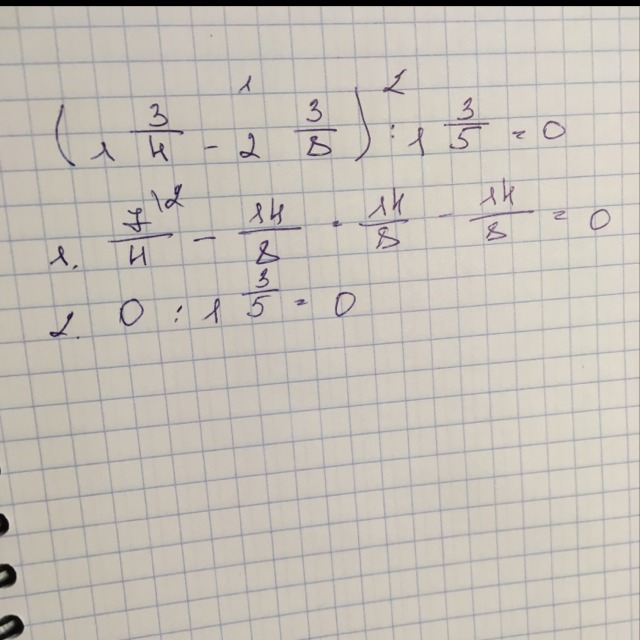 (1 3/4 - 2 3/8) : 1 3/5 = 0
1. 7\2/4 - 14/8 = 14/8 - 14/8 = 0
2. 0 : 1 3/5 = 0